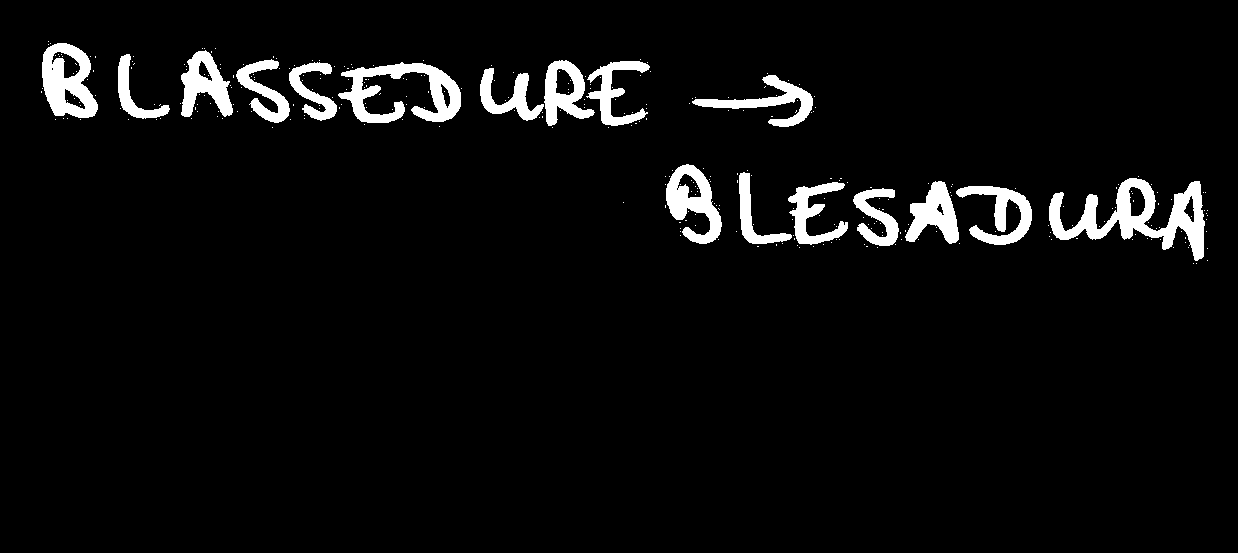 BLASSEDURE →
BLESADURA